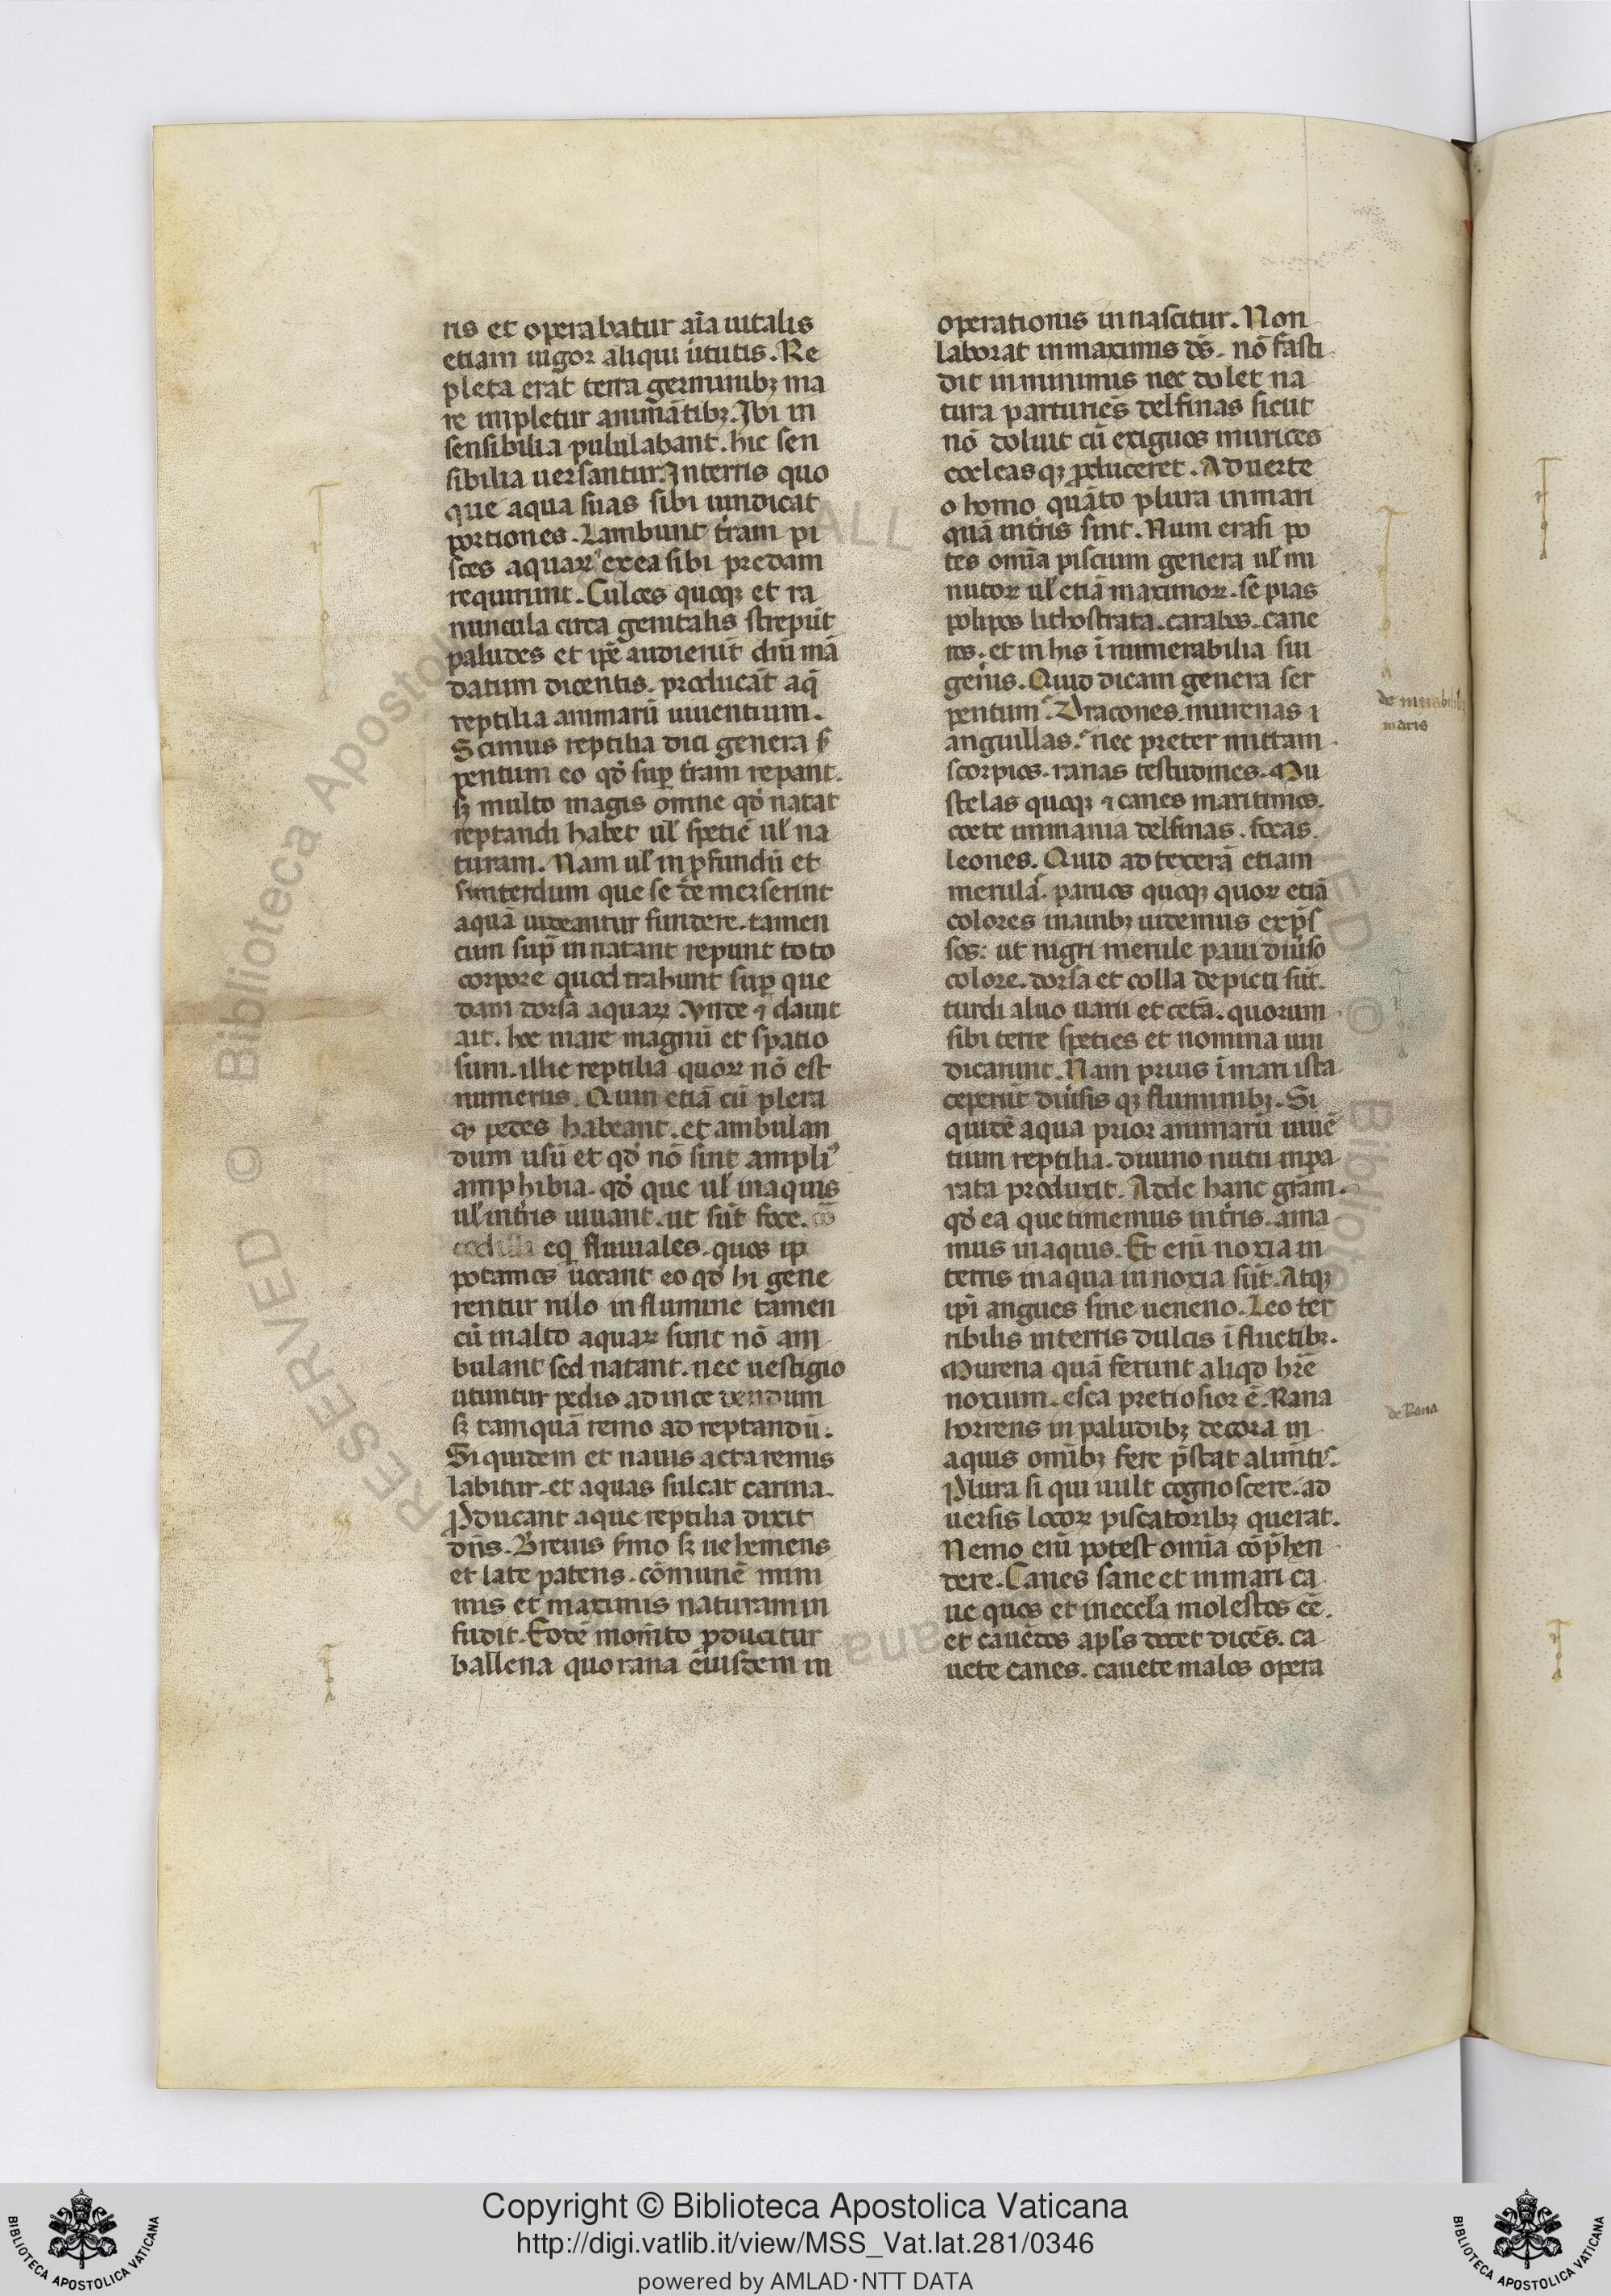 ris et operabatur aīa uitalis
etiam uigor aliqui ūtutis. Re
pleta erat terra germinibꝫ ma
re impletur animātibꝫ. Ibi in
sensibilia pululabant. hic sen
sibilia uersantur. Interris quo
que aqua suas sibi uindicat
portiones. Lambunt t̄ram pi
sces aquaꝝ exea sibi predam
requirunt. Culices quoqꝫ et ra
nuncula circa genitalis strepūt
paludes et ip̄e audierūt dn̄i mā
datum dicentis. producāt aq̄
reptilia animarū uiuentium.
Scimus reptilia dici genera ẜ
pentum eo qd̓ suꝑ t̄ram repant.
sꝫ multo magis omne qd̓ natat
reptandi habet ul̓ spetiē ul̓ na
turam. Nam ul̓ in ꝓfundū et
siinterdum que se demerserint
aquā uideantur fundere. tamen
cum sup̄ innatant repunt toto
corpore quod trahunt suꝑ que
dam dorsa aquaꝝ. Vnde ⁊ dauit
ait. hoc mare magnū et spatio
sum. illic reptilia quoꝝ nō est
numerus. Quin etiā cū plera
qꝫ pedes habeant. et ambulan
dum usū et qd̓ nō sint ampliꝰ
amphibia. qd̓ que ul̓ inaquis
ul̓ int̄ris uiuant. ut sūt foce.
eq̄ fluuiales. quos ip
potamos uocant eo qd̓ hi gene
rentur nilo in flumine tamen
cū inalto aquaꝝ sunt nō am
bulant sed natant. nec uestigio
utuntur pedis ad incedendum
sꝫ tamquā remo ad reptandū.
Siquidem et nauis acta remis
labitur. et aquas sulcat carina.
Ꝓducant aque reptilia dixit
dn̄s. Breuis ẜmo sꝫ uehemens
et late patens. cōmunē mini
mis et maximis naturam in
fudit. Eodē mom̄to ꝓducitur
ballena quo rana eiusdem in
operationis innascitur. Non
laborat inmaximis d̄s. nō fasti
dit inminimis nec dolet na
tura parturiēs delfinas sicut
nō doluit cū exiguos murices
cocleasqꝫ ꝓduceret. Aduerte
o homo quāto plura inmari
quā int̄ris sint. Num erasi po
tes omīa piscium genera ul̓ mi
nutoꝝ ul̓ etiā maximoꝝ. sepias
polipos lithostrata. carabos. cane
ros. et in his īnumerabilia sui
gen̄is. Quid dicam genera ser
pentum. Dracones. murenas ⁊
anguillas. nec preter mittam
scorpios. ranas testudines. Mu
stelas quoqꝫ ⁊ canes maritimos.
coete inmania delfinas. focas.
leones. Quid ad texerā etiam
merulā. paruos quoqꝫ quoꝝ etiā
colores inauibꝫ uidemus exp̄s
sos: ut nigri merule paui diuiso
colore. dorsa et colla depicti sūt.
turdi aluo uarii et cet̄a. quorum
sibi terre speties et nomina uin
dicarunt. Nam prius ī mari ista
ceperūt diuisisqꝫ fluminibꝫ. Si
quidē aqua prior animarū uiuē
tium reptilia. diuino nutu inpa
rata produxit. Adde hanc grām.
qd̓ ea que timemus int̄ris. ama
mus inaquis. Et enī noxia in
terris inaqua innoxia sūt. Atqꝫ
ip̄i angues sine ueneno. Leo ter
ribilis interris dulcis ī fluctibꝫ.
Murena quā ferunt aliqd̓ h̄re
noxium. esca pretiosior ē. Rana
horrens in paludibꝫ decora in
aquis omībꝫ fere p̄stat alim̄tis.
Plura si qui uult cognoscere. ad
uersis locoꝝ piscatoribꝫ querat.
Nemo enī potest omīa cōp̄hen
dere. Canes sane et inmari ca
ue quos et ineccl̄a molestos eē.
et cauēdos apl̄s docet dicēs. ca
uete canes. cauete malos opera
de mirabilib
maris
de Rana
Copyright © Biblioteca Apostolica Vaticana
http://digi.vatlib.it/view/MSS_Vat.lat.281/0346
powered by AMLAD·NTT DATA
BIBLIOTECA APOSTOLICA VATICANA
BIBLIOTECA APOSTOLICA VATICANA